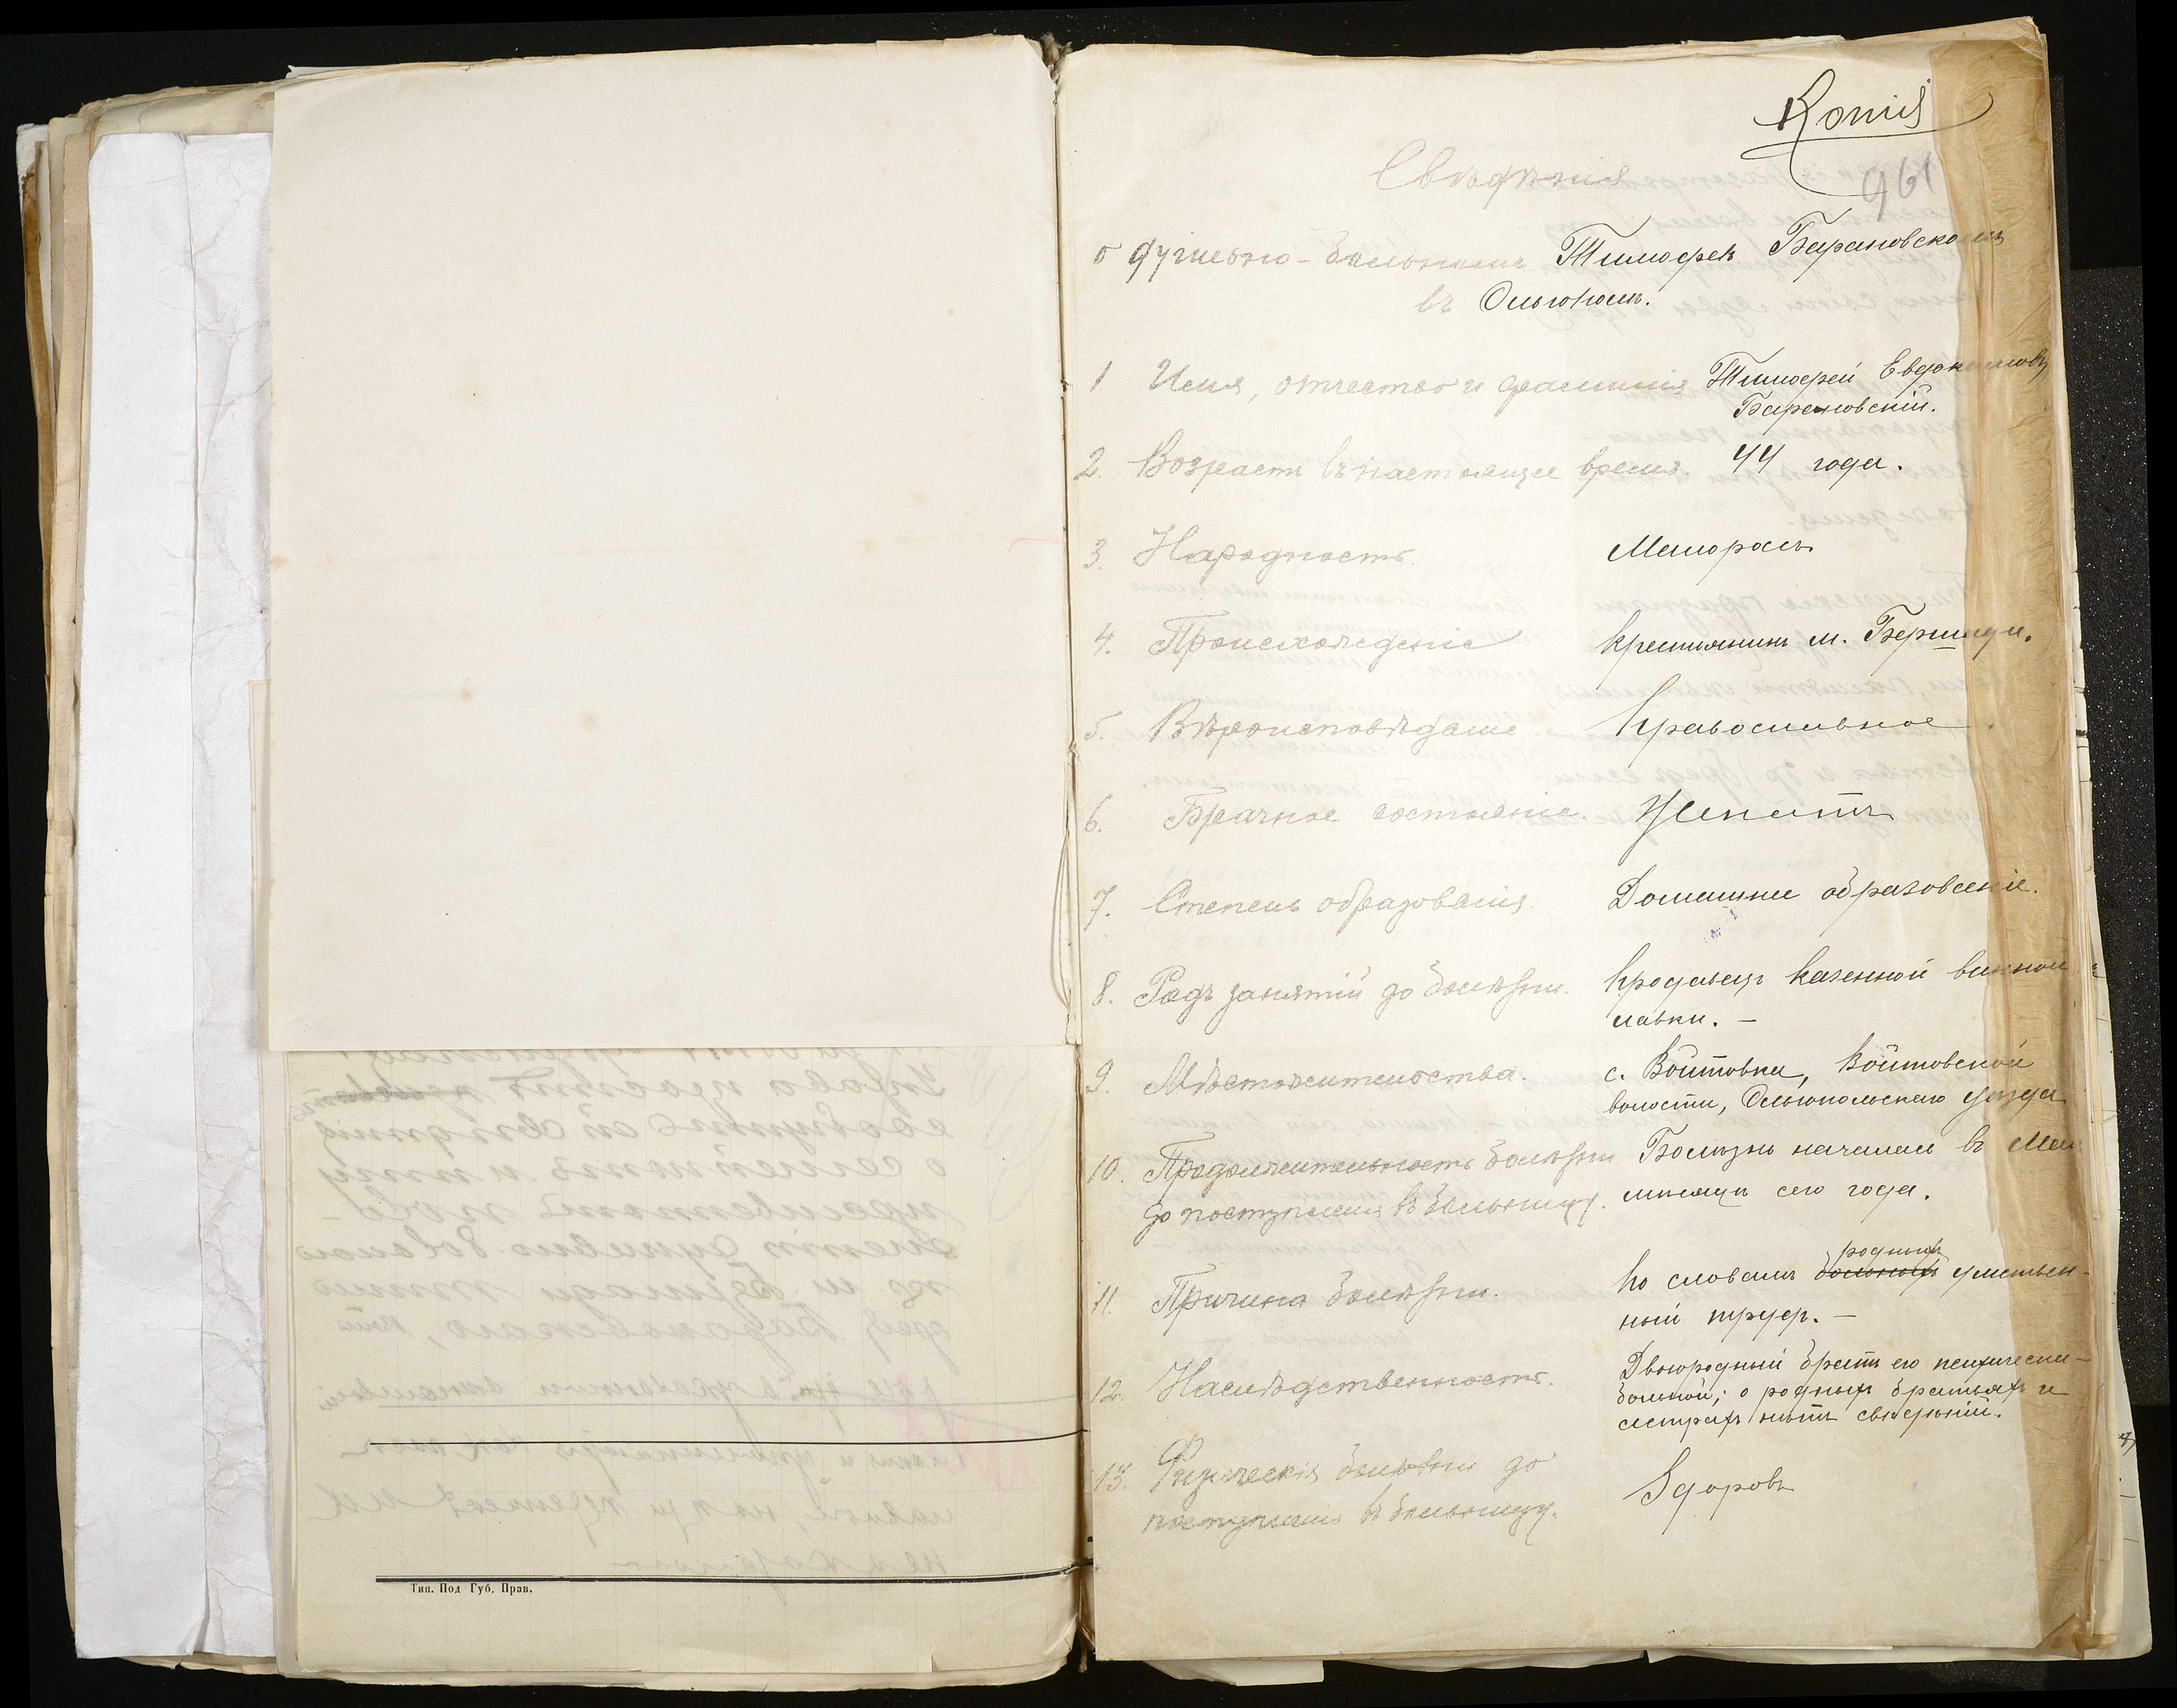 Копія
961
Свѣдѣнія
о душевно-больномъ Тимофеѣ Барановскомъ
въ Ольгополѣ.
1. Имя, отчество и фамилія Тимофей Евдокимовъ
Барановскій.
2. Возрастъ въ настоящее время. 44 года.
3. Народность. Малороссъ
4. Происхожденіе крестьянинъ м. Бершади.
5. Вѣроисповѣданіе Православное
6. Брачное состояніе. Женатъ
7. Степень образованія. Домашнее образованіе.
8. Родъ занятій до болѣзни. Продавецъ казенной винной
лавки. —
9. Мѣстожительства. с. Войтовка, Войтовской
волости, Ольгопольскаго уѣзда
10. Продолжительность болѣзни Болѣзнь началась въ Маѣ
до поступленія въ больницу. мѣсяцѣ сего года.
родныхъ
11. Причина болѣзни. По словамъ больныхъ умствен-
ный трудъ. —
12. Наслѣдственность. Двоюродный братъ его психически-
больной; о родныхъ братьяхъ и
сестрахъ нѣтъ свѣдѣній.
13. Физическія болѣзни до Здоровъ
поступленія въ больницу.
Тип. Под Губ. Прав.